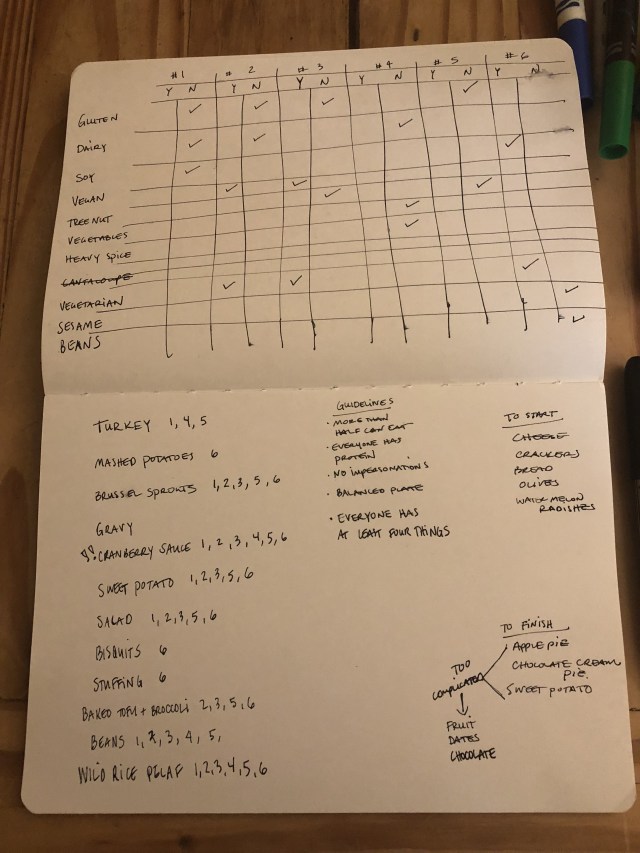 #1 # 2 # 3 # 4 # 5 #6
Y N Y N Y N Y N Y N Y N
GLUTEN ✓ ✓ ✓ ✓
DAIRY ✓ ✓ ✓ ✓
SOY ✓
VEGAN ✓ ✓ ✓
TREE NUT ✓ ✓
VEGETABLES ✓
HEAVY SPICE
CANTALOUPE ✓
VEGETARIAN ✓ ✓ ✓
SESAME ✓
BEANS
TURKEY 1, 4, 5
MASHED POTATOES 6
BRUSSEL SPROUTS 1, 2, 3, 5, 6
GRAVY
CRANBERRY SAUCE 1, 2, 3, 4, 5, 6
SWEET POTATO 1, 2, 3, 5, 6
SALAD 1, 2, 3, 5, 6
BISQUITS 6
STUFFING 6
BAKED TOFU + BROCCOLI 2, 3, 5, 6
BEANS 1, 2, 3, 4, 5,
WILD RICE PILAF 1, 2, 3, 4, 5, 6
GUIDELINES
• MORE THAN
HALF CAN EAT
• EVERYONE HAS
PROTEIN
• NO IMPERSONATIONS
• BALANCED PLATE
• EVERYONE HAS
AT LEAST FOUR THINGS
TO START
CHEESE
CRACKERS
BREAD
OLIVES
WATERMELON
RADISHES
TO FINISH
APPLE PIE
CHOCOLATE CREAM
PIE
SWEET POTATO
TOO
COMPLICATED
FRUIT
DATES
CHOCOLATE